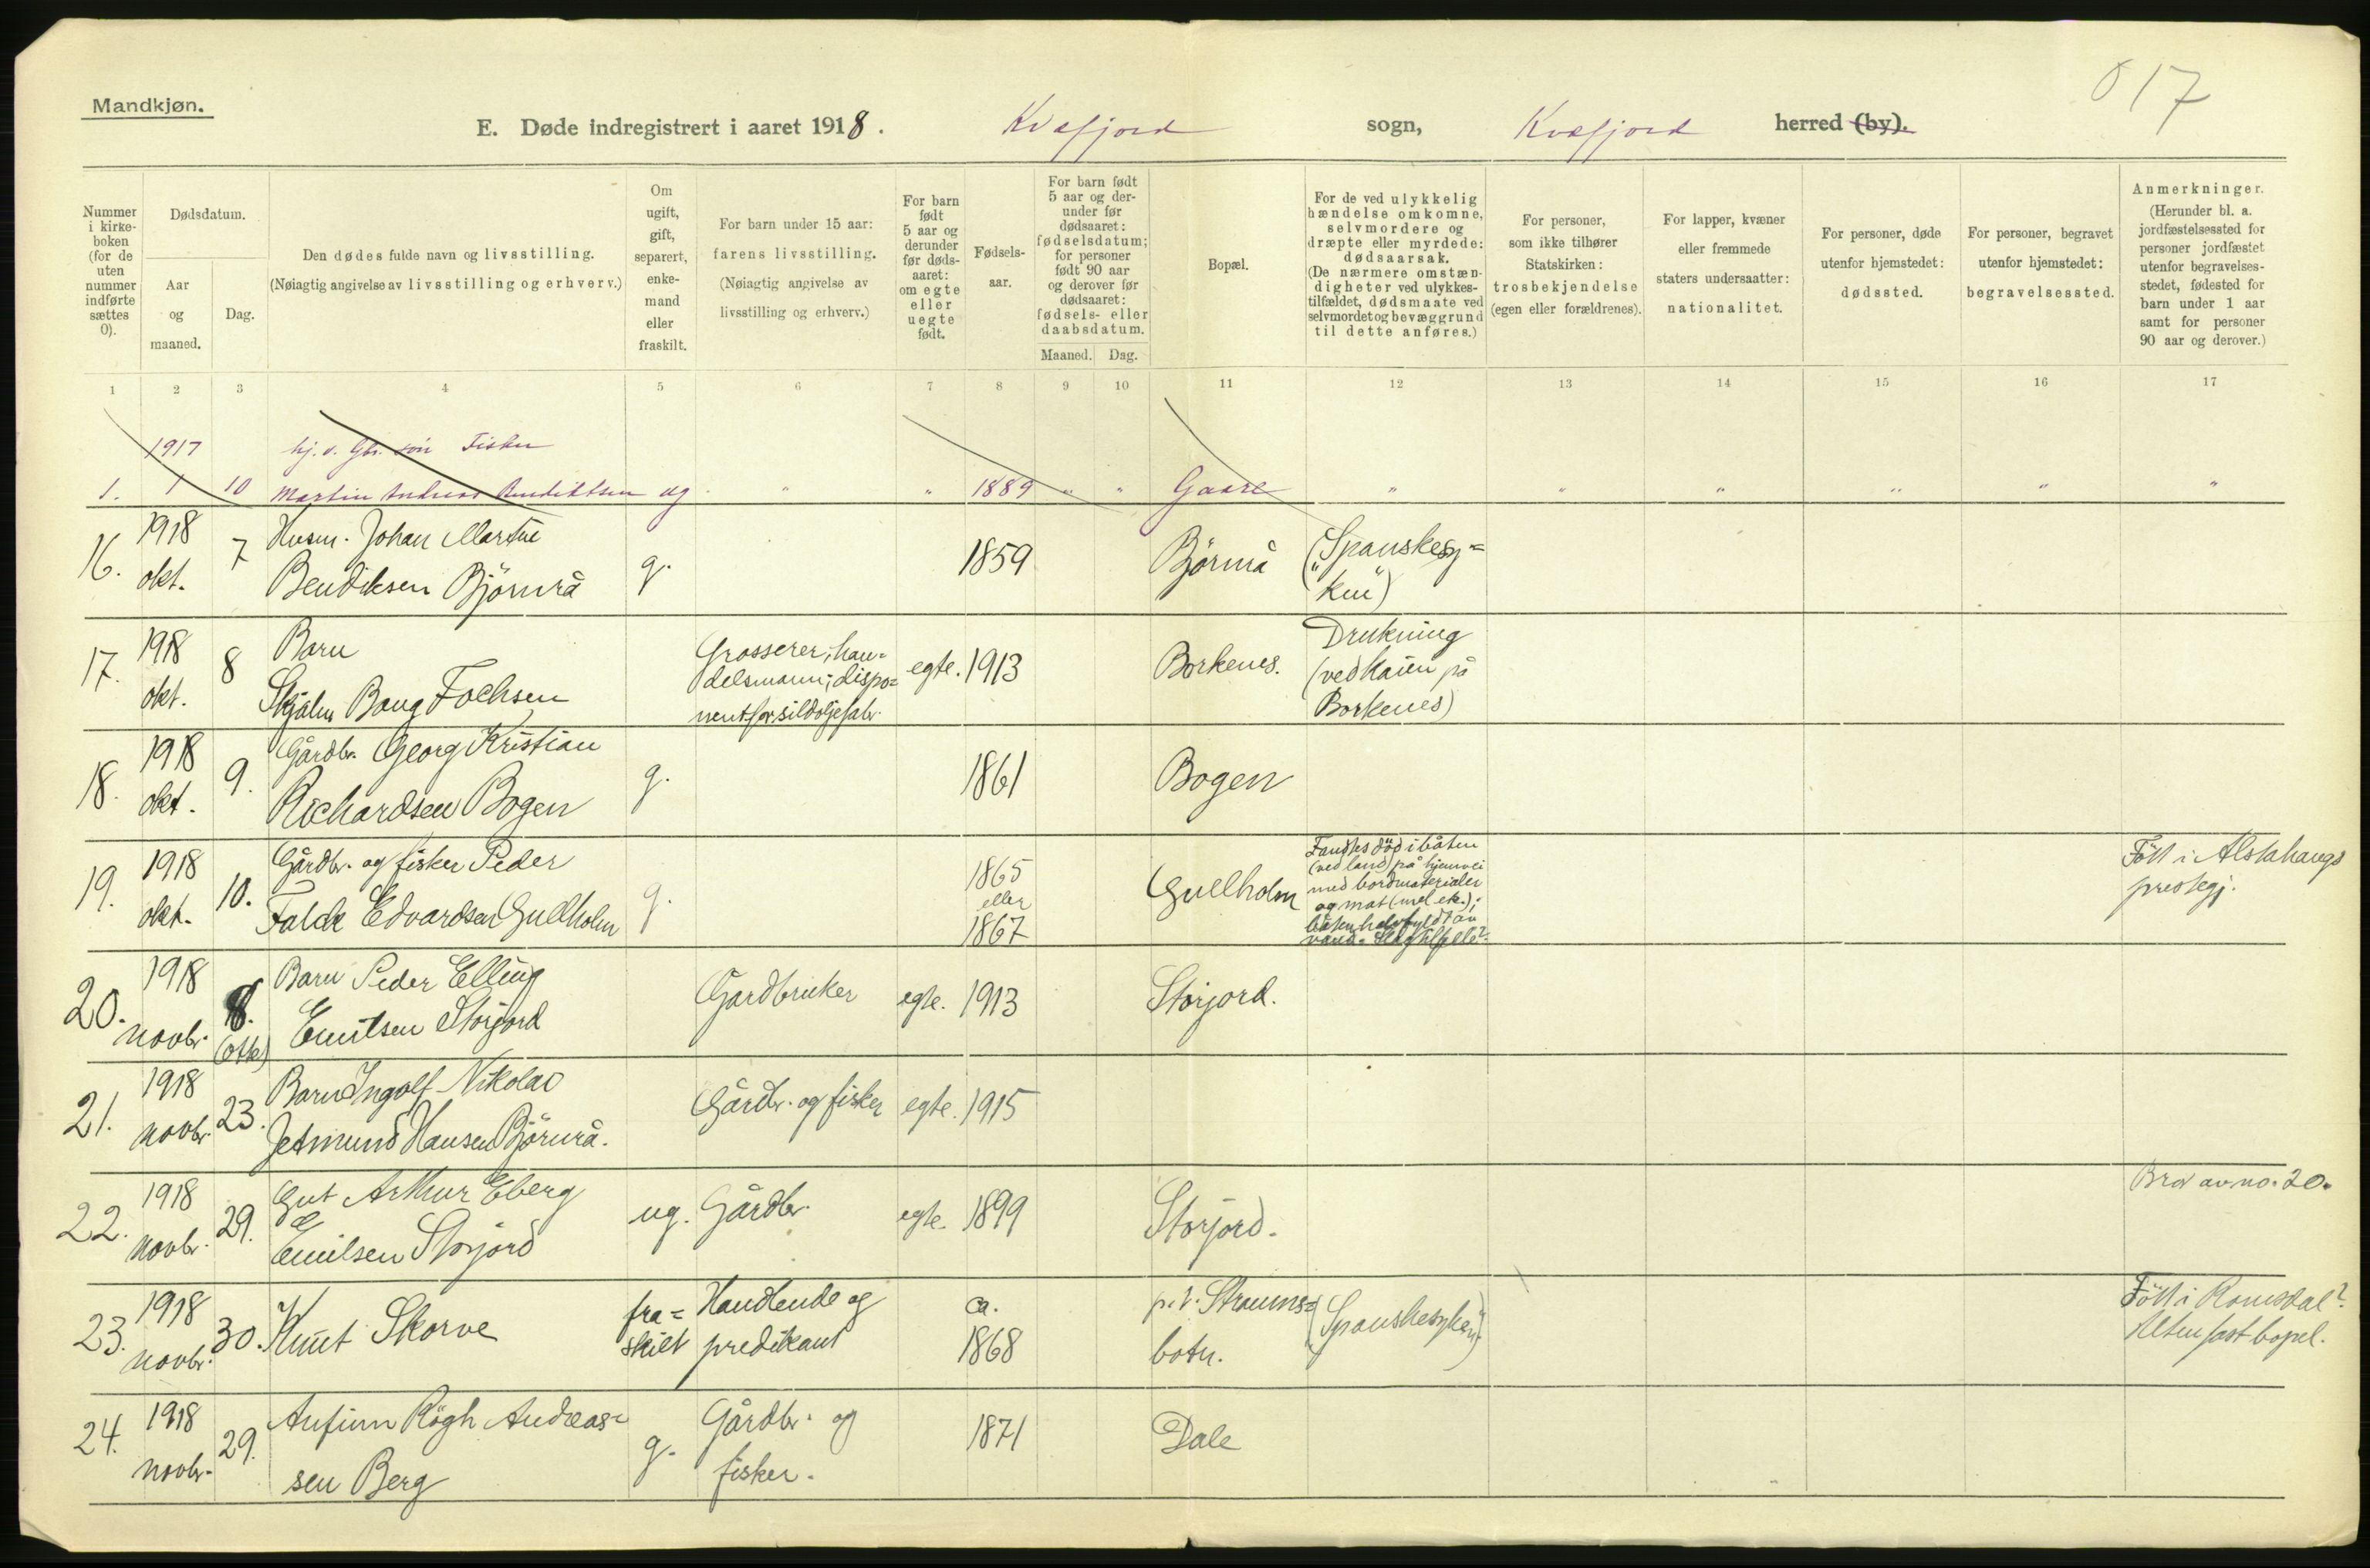 017
Mandkjøn.
E. Døde indregistrert i aaret 1918.
Kvæfjord sogn,
Kvæfjord herred (by).
Nummer i kirkeboken (for de uten nummer indførte sættes 0).
Dødsdatum.
Aar og maaned.
Dag.
Den dødes fulde navn og livsstilling.
(Nøiagtig angivelse av livsstilling og erhverv.)
Om ugift, gift, separert, enkemand eller fraskilt.
For barn under 15 aar:
farens livsstilling.
(Nøiagtig angivelse av livsstilling og erhverv.)
For barn født 5 aar og derunder før dødsaaret: om egte eller uegte født.
Fødselsaar.
For barn født 5 aar og derunder før dødsaaret: fødselsdatum; for personer født 90 aar og derover før dødsaaret: fødsels- eller daabsdatum.
Maaned. Dag.
Bopæl.
For de ved ulykkelig hændelse omkomne, selvmordere og dræpte eller myrdede: dødsaarsak.
(De nærmere omstændigheter ved ulykkestilfældet, dødsmaate ved selvmordet og bevæggrund til dette anføres.)
For personer, som ikke tilhører Statskirken: trosbekjendelse (egen eller forældrenes).
For lapper, kvæner eller fremmede staters undersaatter: nationalitet.
For personer, døde utenfor hjemstedet: dødssted.
For personer, begravet utenfor hjemstedet: begravelsessted.
Anmerkninger.
(Herunder bl. a. jordfæstelsessted for personer jordfæstet utenfor begravelsesstedet, fødested for barn under 1 aar samt for personer 90 aar og derover.)
1 2 3 4 5 6 7 8 9 10 11 12 13 14 15 16 17
1917 hj. v. Gbr. søn Fisker
1. 1 10 Martin Andreas Bendiktsen ug " " 1889 " " Gaare " " " " " "
16. 1918 okt. 7 Husm. Johan Martin
Bendiksen Björnrå g. 1859 Björnrå ("Spanskesy=
ken")
17. 1918 okt. 8 Barn
Skjalm Bang Fochsen
Grosserer, han=
delsmann; dispo=
nent for sildoljefabr.
egte. 1913 Borkenes.
Drukning
(ved kaien på
Borkenes)
18. 1918 okt. 9. Gårdbr. Georg Kristian
Richardsen Bogen g. 1861 Bogen
19. 1918 okt. 10. Gårdbr. og fisker Peder
Falck Edvardsen Gullholm g.
1865
eller
1867
Gullholm
Fandtes död i båten
(ved land) på hjemvei
med bordmaterialer
og mat (mel etc.);
båten halvfyldt av
vand. Slagtilfelle?
Född i Alstahaugs
prestegj.
20. 1918 novbr. 8. (otte) Barn Peder Elling
Emilsen Storjord Gardbruker egte. 1913 Storjord.
21. 1918 novbr. 23. Barn Ingolf Nikolai
Jetmund Hansen Björnrå. Gårdbr. og fisker egte. 1915
22. 1918 novbr. 29. Gut Arthur Eberg
Emilsen Storjord ug. Gårdbr. egte. 1899 Storjord.
Bror av no. 20.
23. 1918 novbr. 30. Knut Skorve
fra=
skilt
Handlende og
predikant
ca.
1868
p. t. Straums=
botn.
("Spanskesyken")
Född i Romsdal?
Uten fast bopel.
24. 1918 novbr. 29. Anfinn Rögh Andreas=
sen Berg g. Gårdbr. og
fisker. 1871 Dale